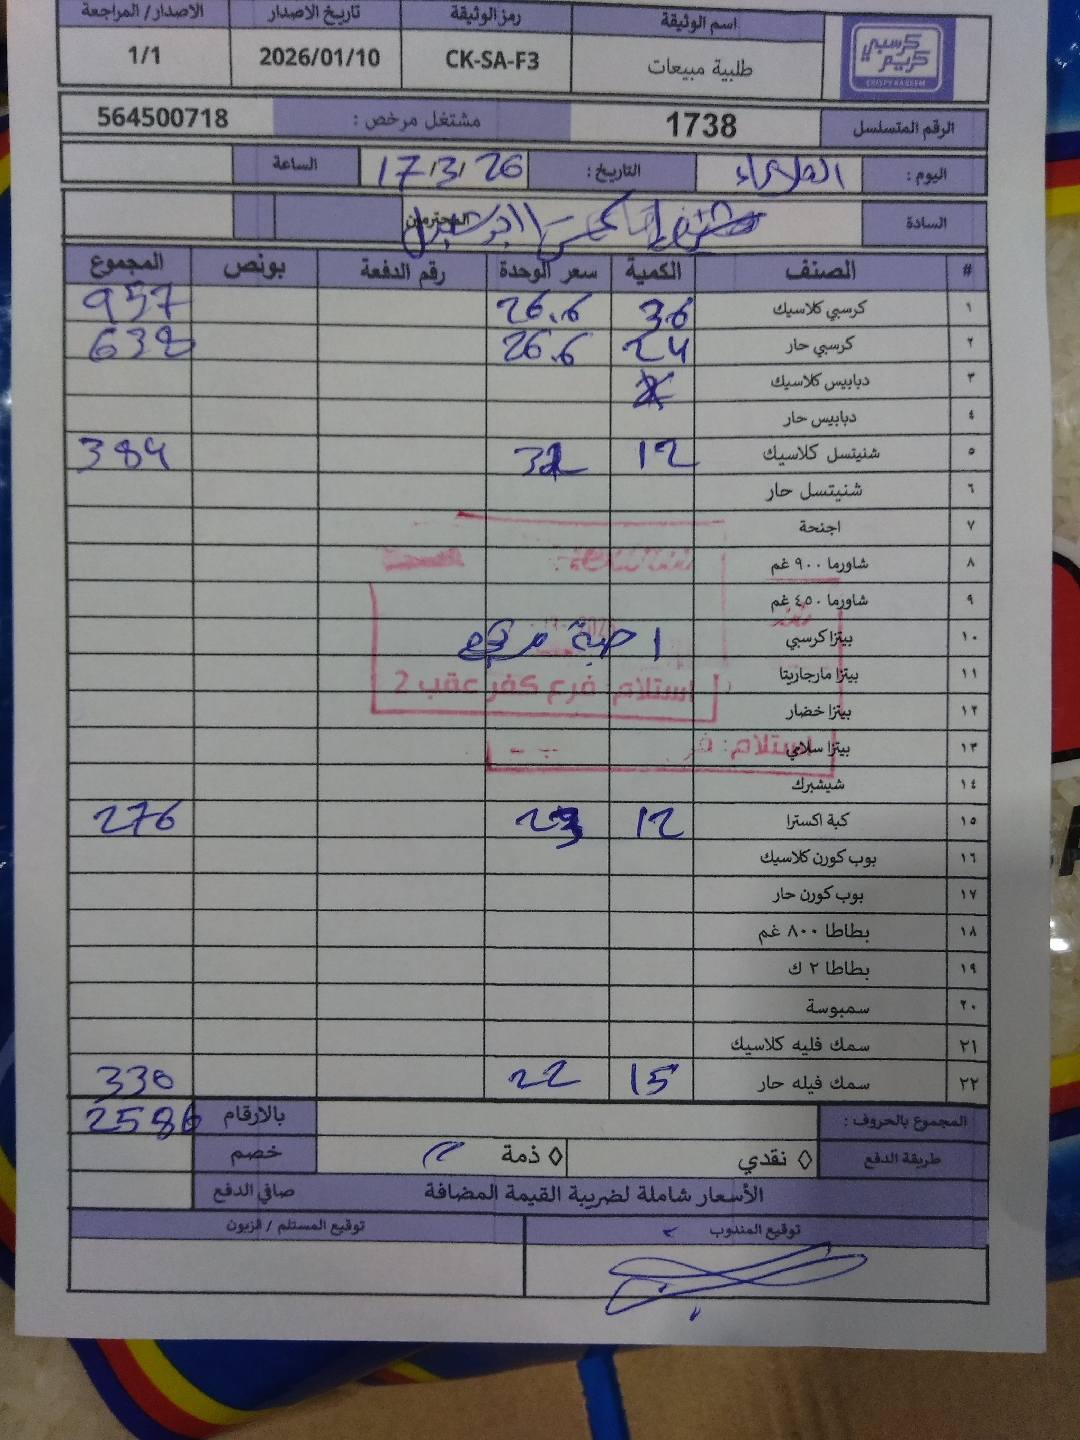 كرسبي كريم
CRISPY KAREEM
اسم الوثيقة رمز الوثيقة تاريخ الاصدار الاصدار/ المراجعة
طلبية مبيعات CK-SA-F3 2026/01/10 1/1
الرقم المتسلسل 1738 مشتغل مرخص : 564500718
اليوم : الثلاثاء التاريخ : 17/3/26 الساعة
السادة المحترمون
# الصنف الكمية سعر الوحدة رقم الدفعة بونص المجموع
١ كرسبي كلاسيك 36 26.6 957
٢ كرسبي حار 24 26.6 638
٣ دبابيس كلاسيك
٤ دبابيس حار
٥ شنيتسل كلاسيك 12 32 384
٦ شنيتسل حار
٧ اجنحة
٨ شاورما ٩٠٠ غم
٩ شاورما ٤٥٠ غم
١٠ بيتزا كرسبي 1 حبة مرتجع
١١ بيتزا مارجاريتا
استلام: فرع كفر عقب 2
١٢ بيتزا خضار
١٣ بيتزا سلامي
استلام:
١٤ شيشبرك
١٥ كبة اكسترا 12 23 276
١٦ بوب كورن كلاسيك
١٧ بوب كورن حار
١٨ بطاطا ٨٠٠ غم
١٩ بطاطا ٢ ك
٢٠ سمبوسة
٢١ سمك فليه كلاسيك
٢٢ سمك فيله حار 15 22 330
المجموع بالحروف : بالارقام 2586
طريقة الدفع ◊ نقدي ◊ ذمة خصم
الأسعار شاملة لضريبة القيمة المضافة صافي الدفع
توقيع المندوب توقيع المستلم / الزبون